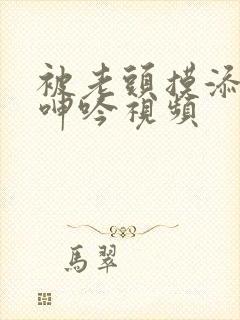 被老頭摸添
呻吟視頻
馬翠